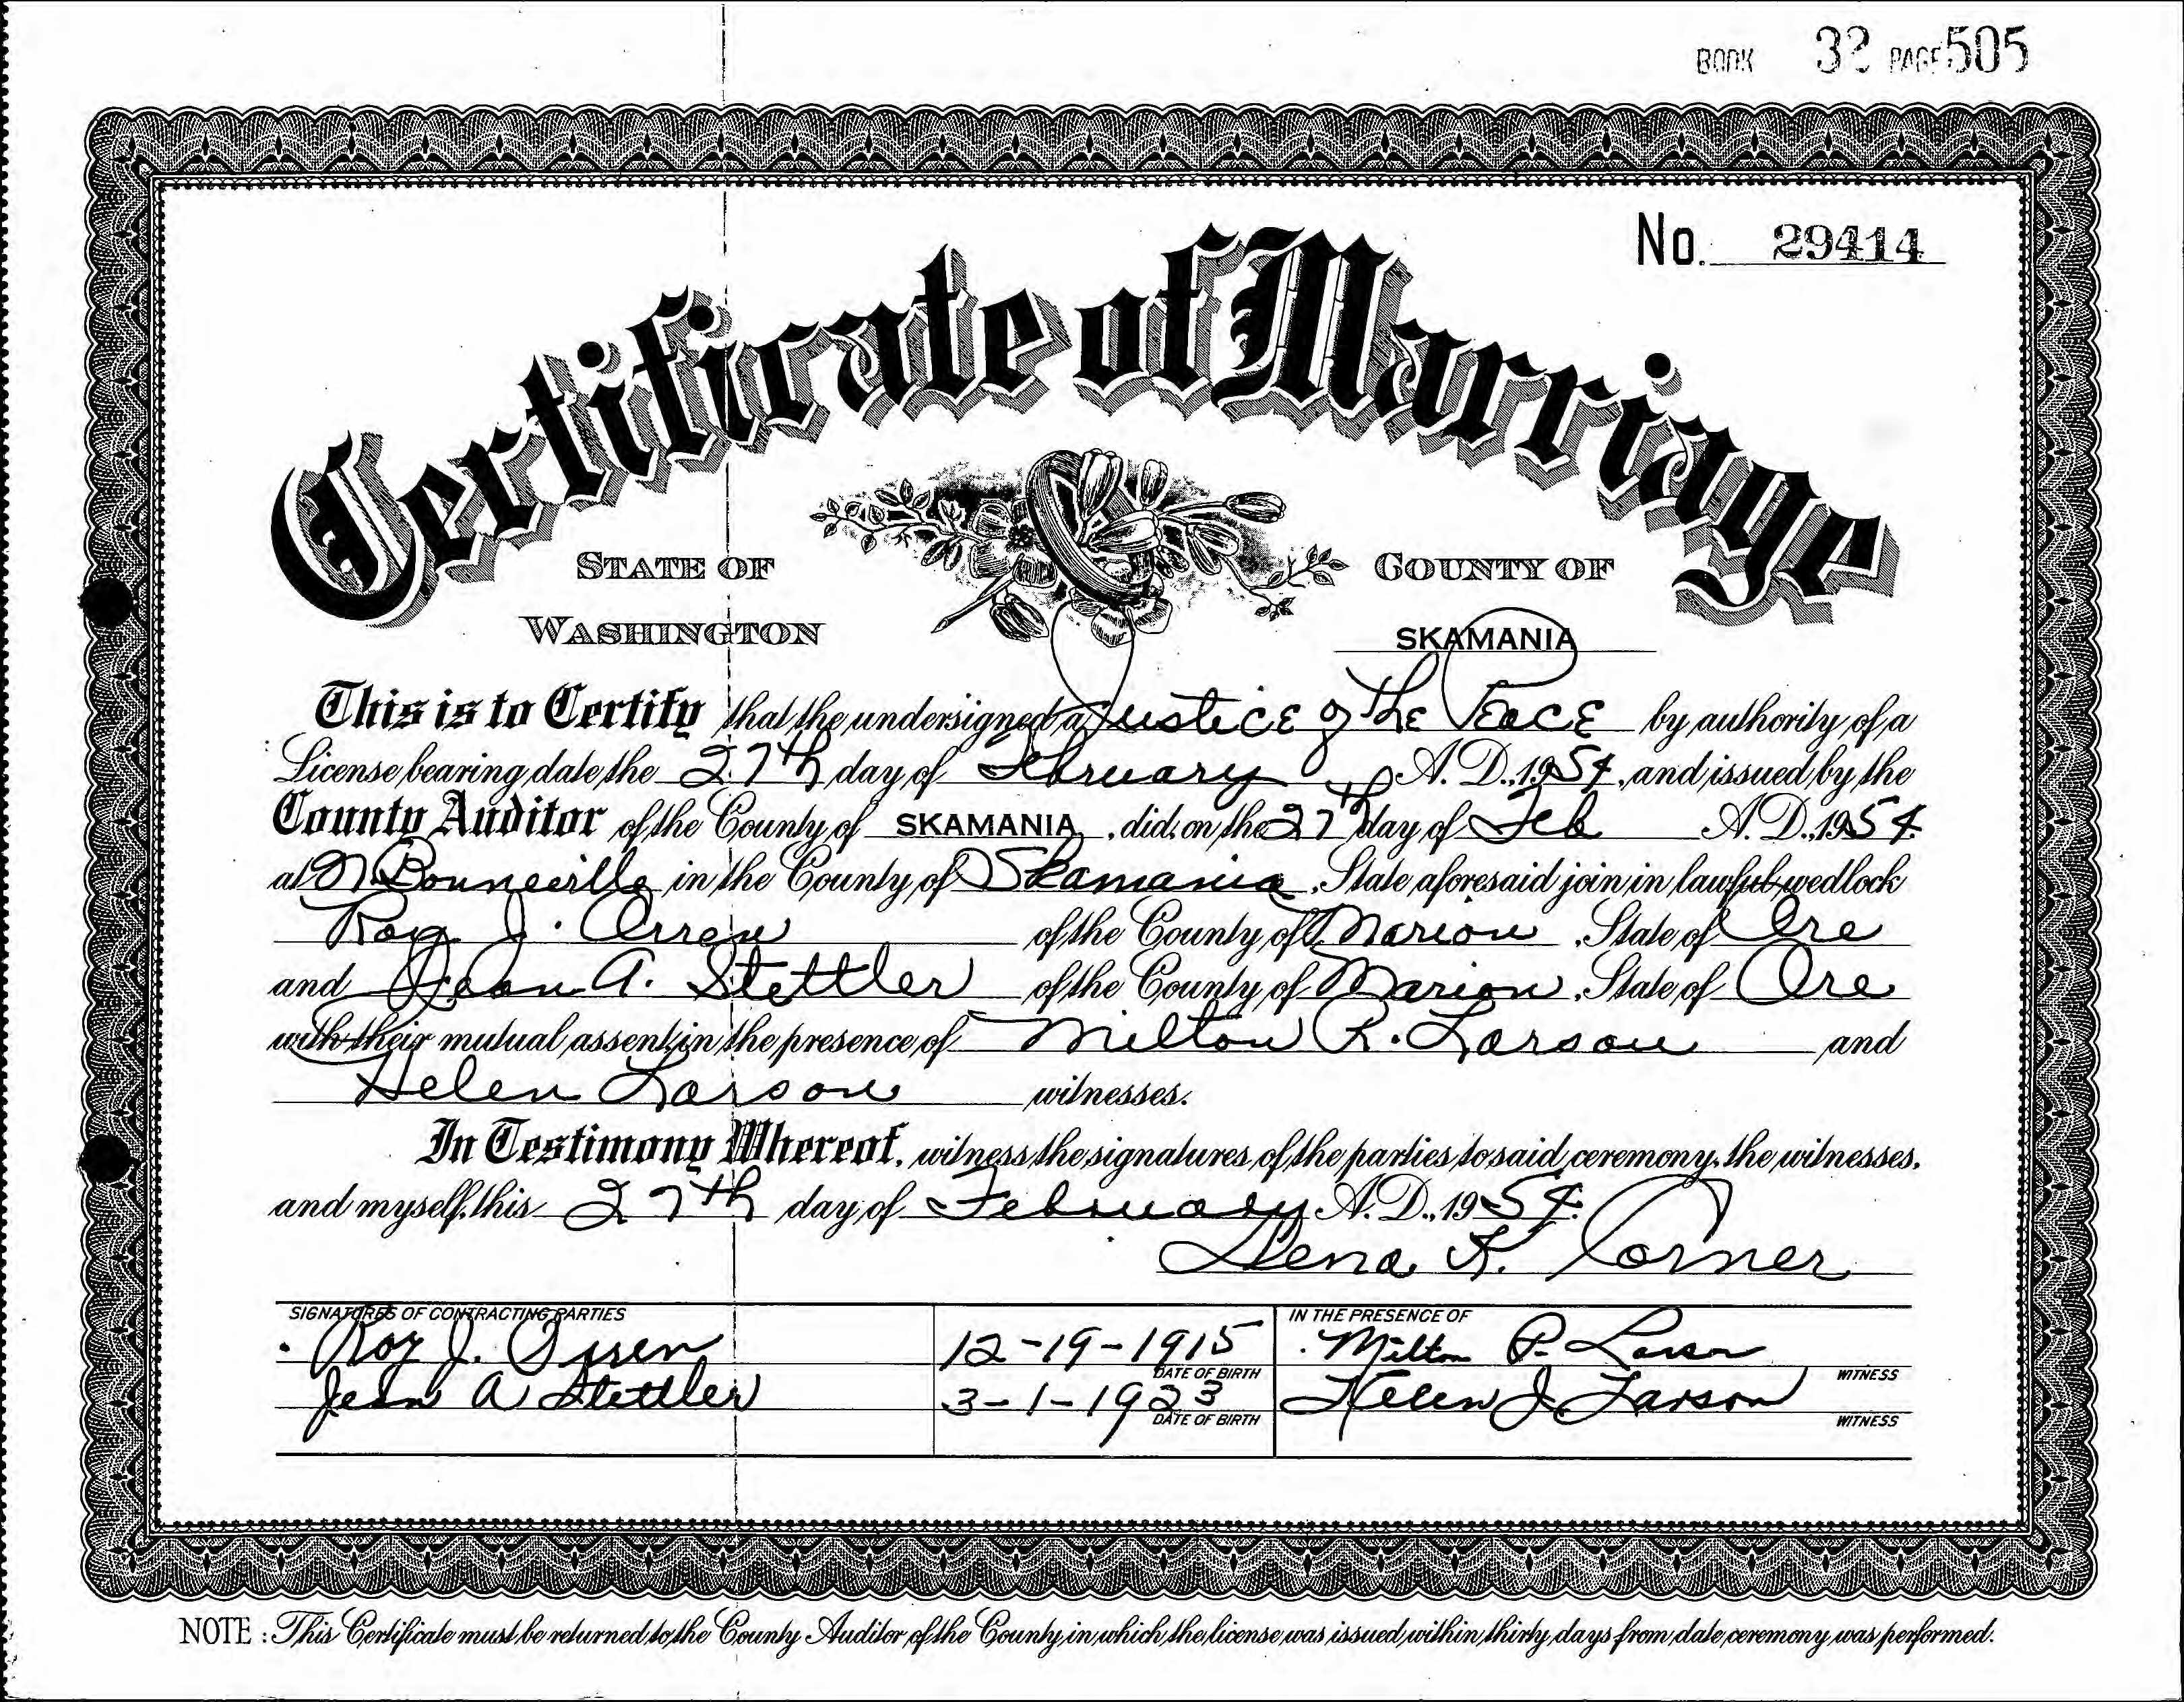 BOOK 32 PAGE 505
No. 29414
Certificate of Marriage
STATE OF
WASHINGTON
COUNTY OF
SKAMANIA
This is to Certify that the undersigned, a Justice of the Peace by authority of a
License bearing date the 27th day of February A. D. 1954, and issued by the
County Auditor of the County of SKAMANIA, did, on the 27th day of Feb A. D. 1954
at N Bonneville in the County of Skamania, State aforesaid join in lawful wedlock
Roy J. Orren of the County of Marion, State of Ore
and Jean A. Stettler of the County of Marion, State of Ore
with their mutual assent, in the presence of Milton R. Larson and
Helen Larson witnesses.
In Testimony Whereof, witness the signatures of the parties to said ceremony, the witnesses,
and myself, this 27th day of February A. D., 1954.
Lena K. Corner
SIGNATURES OF CONTRACTING PARTIES
IN THE PRESENCE OF
Roy J. Orren 12-19-1915 Milton Larson
DATE OF BIRTH WITNESS
Jean A Stettler 3-1-1923 Helen J Larson
DATE OF BIRTH WITNESS
NOTE: This Certificate must be returned to the County Auditor of the County in which the license was issued within thirty days from date ceremony was performed.